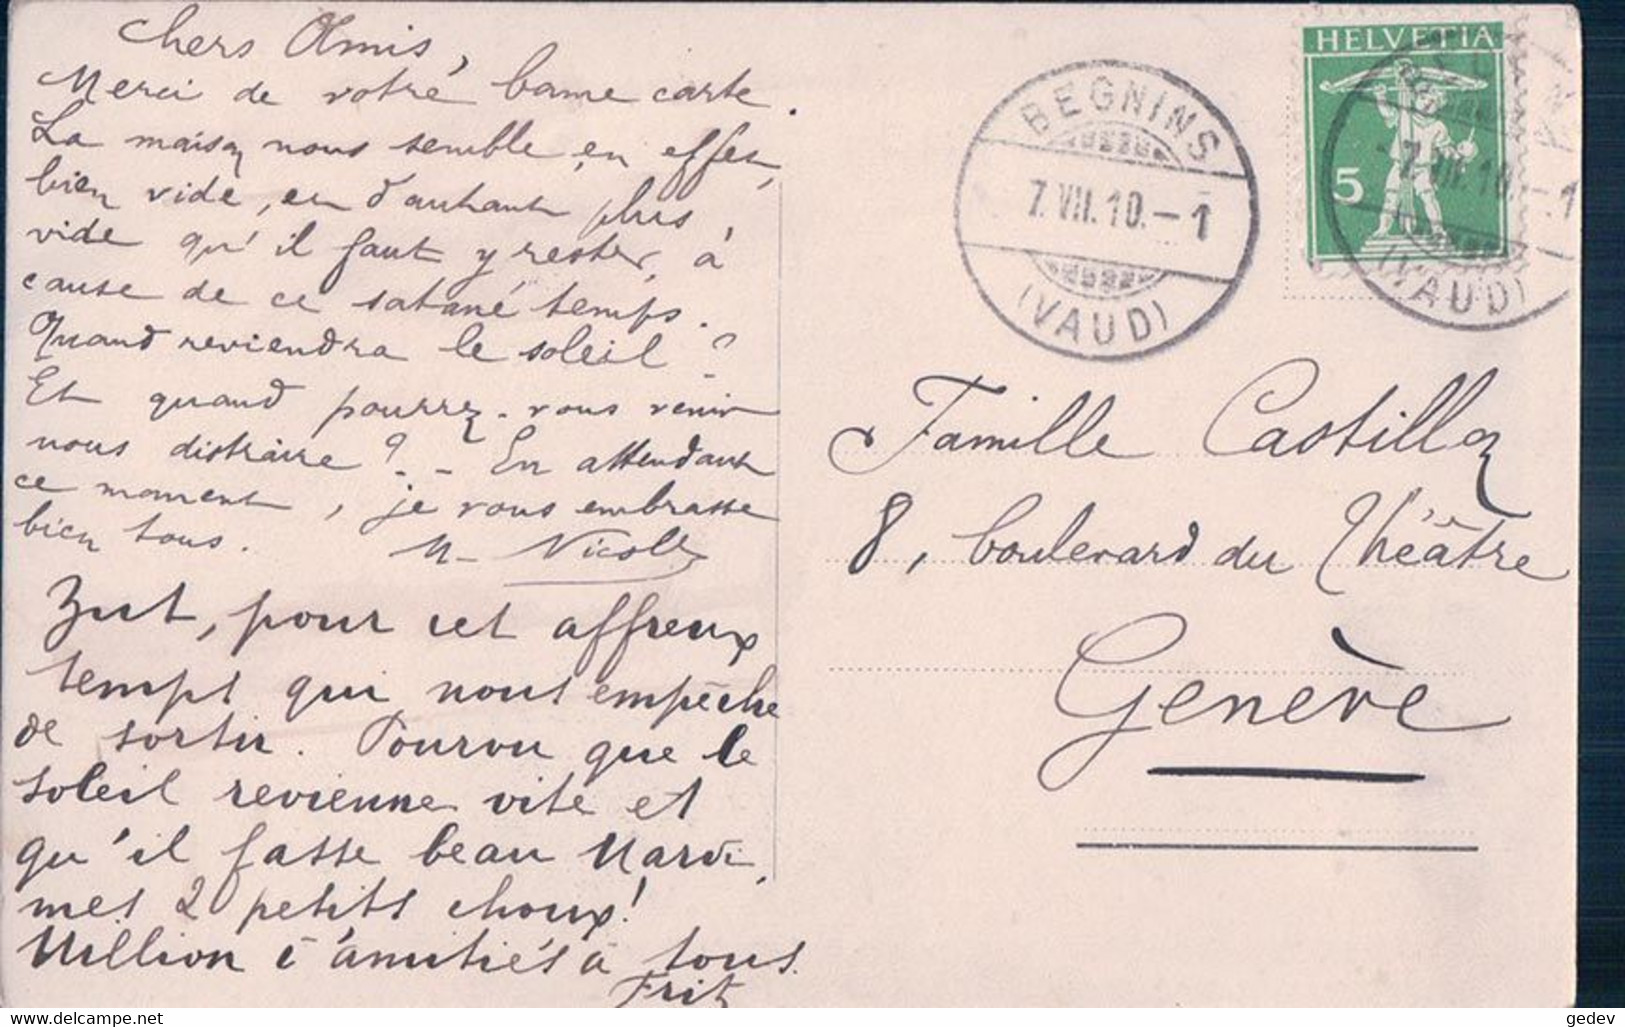 Chers Amis,
Merci de votre bonne carte.
La maison nous semble en effet,
bien vide, et d'autant plus,
vide qu'il faut y rester, à
cause de ce satané temps.
Quand reviendra le soleil ?
Et quand pourrez-vous venir
nous distraire ? - En attendant
ce moment, je vous embrasse
bien tous. M. Nicole
Zut, pour cet affreux
temps qui nous empêche
de sortir. Pourvu que le
soleil revienne vite et
qu'il fasse beau Mardi,
mes 2 petits choux!
Million d'amitiés à tous.
Fritz
BEGNINS
7.VII.10.-1
(VAUD)
HELVETIA
5
7.VII.10.-1
(VAUD)
Famille Castilloz
8, boulevard du Théâtre
Genève
gedev